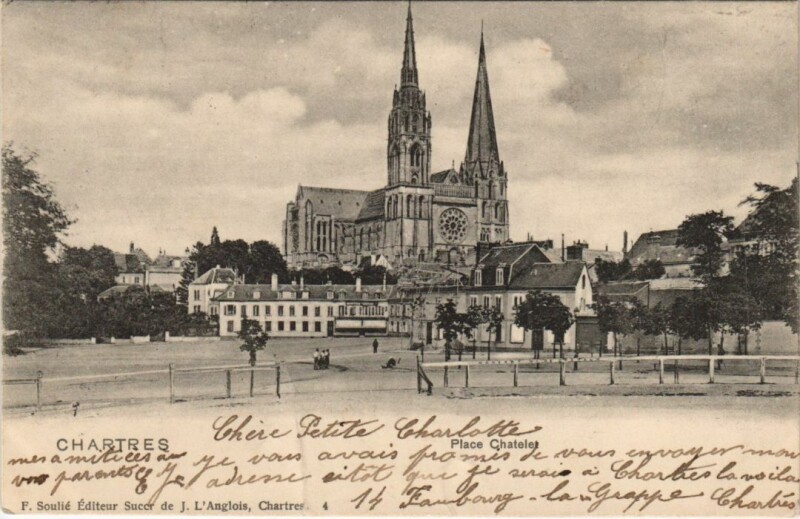 Chère Petite Charlotte
CHARTRES
Place Chatelet
je vous avais promis de vous envoyer mon
mes amitiées au
vos parents
adresse sitôt que je serais à Chartres la voila
F. Soulié Éditeur Succr de J. L'Anglois, Chartres. 4
14 Faubourg-la-Grappe Chartres